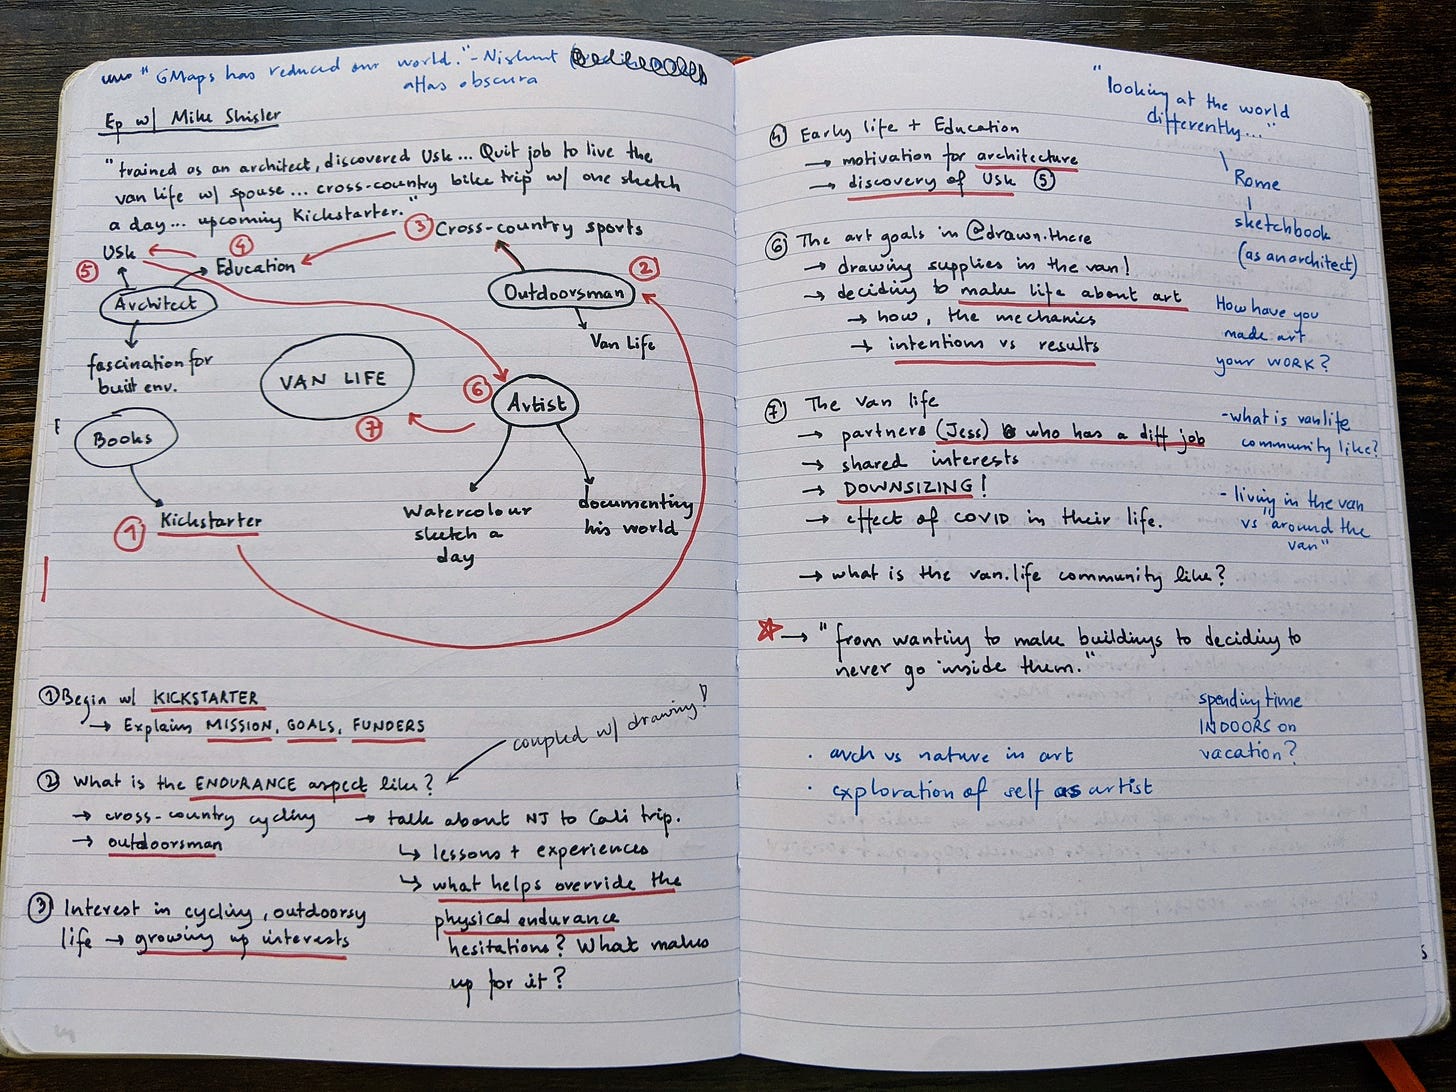 "GMaps has reduced our world." - Nishant
atlas obscura
Ep w/ Mike Shisler
"trained as an architect, discovered Usk... Quit job to live the
van life w/ spouse... cross-country bike trip w/ one sketch
a day... upcoming Kickstarter."
③ Cross-country sports
Usk
④
Education
⑤
Architect
②
Outdoorsman
Van Life
fascination for
built env.
VAN LIFE
⑥
Artist
⑦
Books
① Kickstarter
Watercolour
sketch a
day
documenting
his world
① Begin w/ KICKSTARTER
→ Explain MISSION, GOALS, FUNDERS
coupled w/ drawing!
② What is the ENDURANCE aspect like?
→ cross-country cycling
→ outdoorsman
→ talk about NJ to Cali trip.
↳ lessons + experiences
↳ what helps override the
physical endurance
hesitations? What makes
up for it?
③ Interest in cycling, outdoorsy
life → growing up interests
"looking at the world
differently..."
Rome
sketchbook
(as an architect)
④ Early life + Education
→ motivation for architecture
→ discovery of Usk ⑤
⑥ The art goals in @drawn.there
→ drawing supplies in the van!
→ deciding to make life about art
→ how, the mechanics
→ intentions vs results
How have you
made art
your WORK?
⑦ The van life
→ partners (Jess) who has a diff job
→ shared interests
→ DOWNSIZING!
→ effect of COVID in their life.
→ what is the van.life community like?
- what is vanlife
community like?
- living in the van
vs "around the
van"
→ "from wanting to make buildings to deciding to
never go inside them."
spending time
INDOORS on
vacation?
· arch vs nature in art
· exploration of self as artist